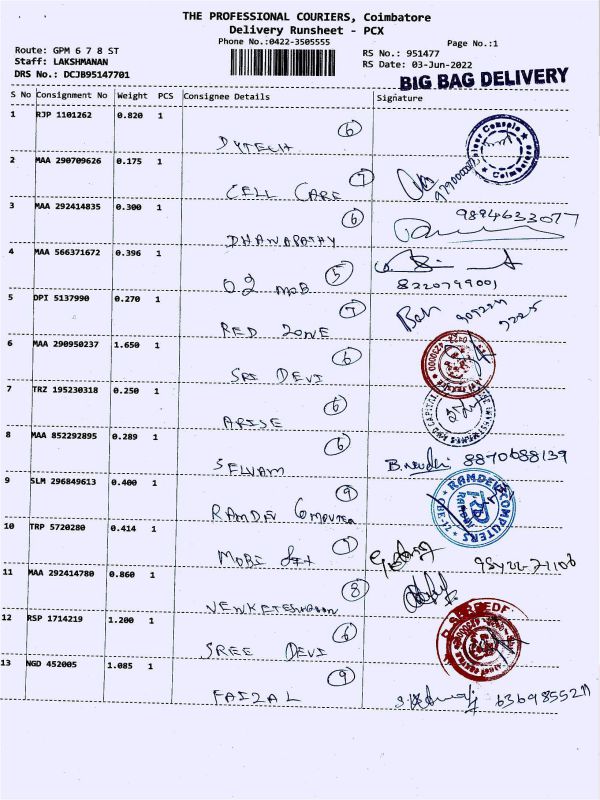 THE PROFESSIONAL COURIERS, Coimbatore
Delivery Runsheet - PCX
Phone No.:0422-3505555
Page No.:1
Route: GPM 6 7 8 ST
RS No.: 951477
Staff: LAKSHMANAN
RS Date: 03-Jun-2022
DRS No.: DCJB95147701
BIG BAG DELIVERY
S No Consignment No Weight PCS Consignee Details Signature
1 RJP 1101262 0.820 1 DYTECH 6
2 MAA 290709626 0.175 1 CELL CARE 7
3 MAA 292414835 0.300 1 DHANAPATHY 6 9894633077
4 MAA 566371672 0.396 1 O2 MOB 5 8220799001
5 DPI 5137990 0.270 1 RED ZONE 7
6 MAA 290950237 1.650 1 SRI DEVI 6
7 TRZ 195230318 0.250 1 ARISE 6
8 MAA 852292895 0.289 1 SELVAM 6 8870688139
9 SLM 296849613 0.400 1 RAMDEV COMPUTER 9 RAMDEV COMPUTERS
10 TRP 5720280 0.414 1 MOBI
11 MAA 292414780 0.860 1 8
12 RSP 1714219 1.200 1 SREE DEVI 6
13 NGD 452005 1.085 1 FAIZAL 9